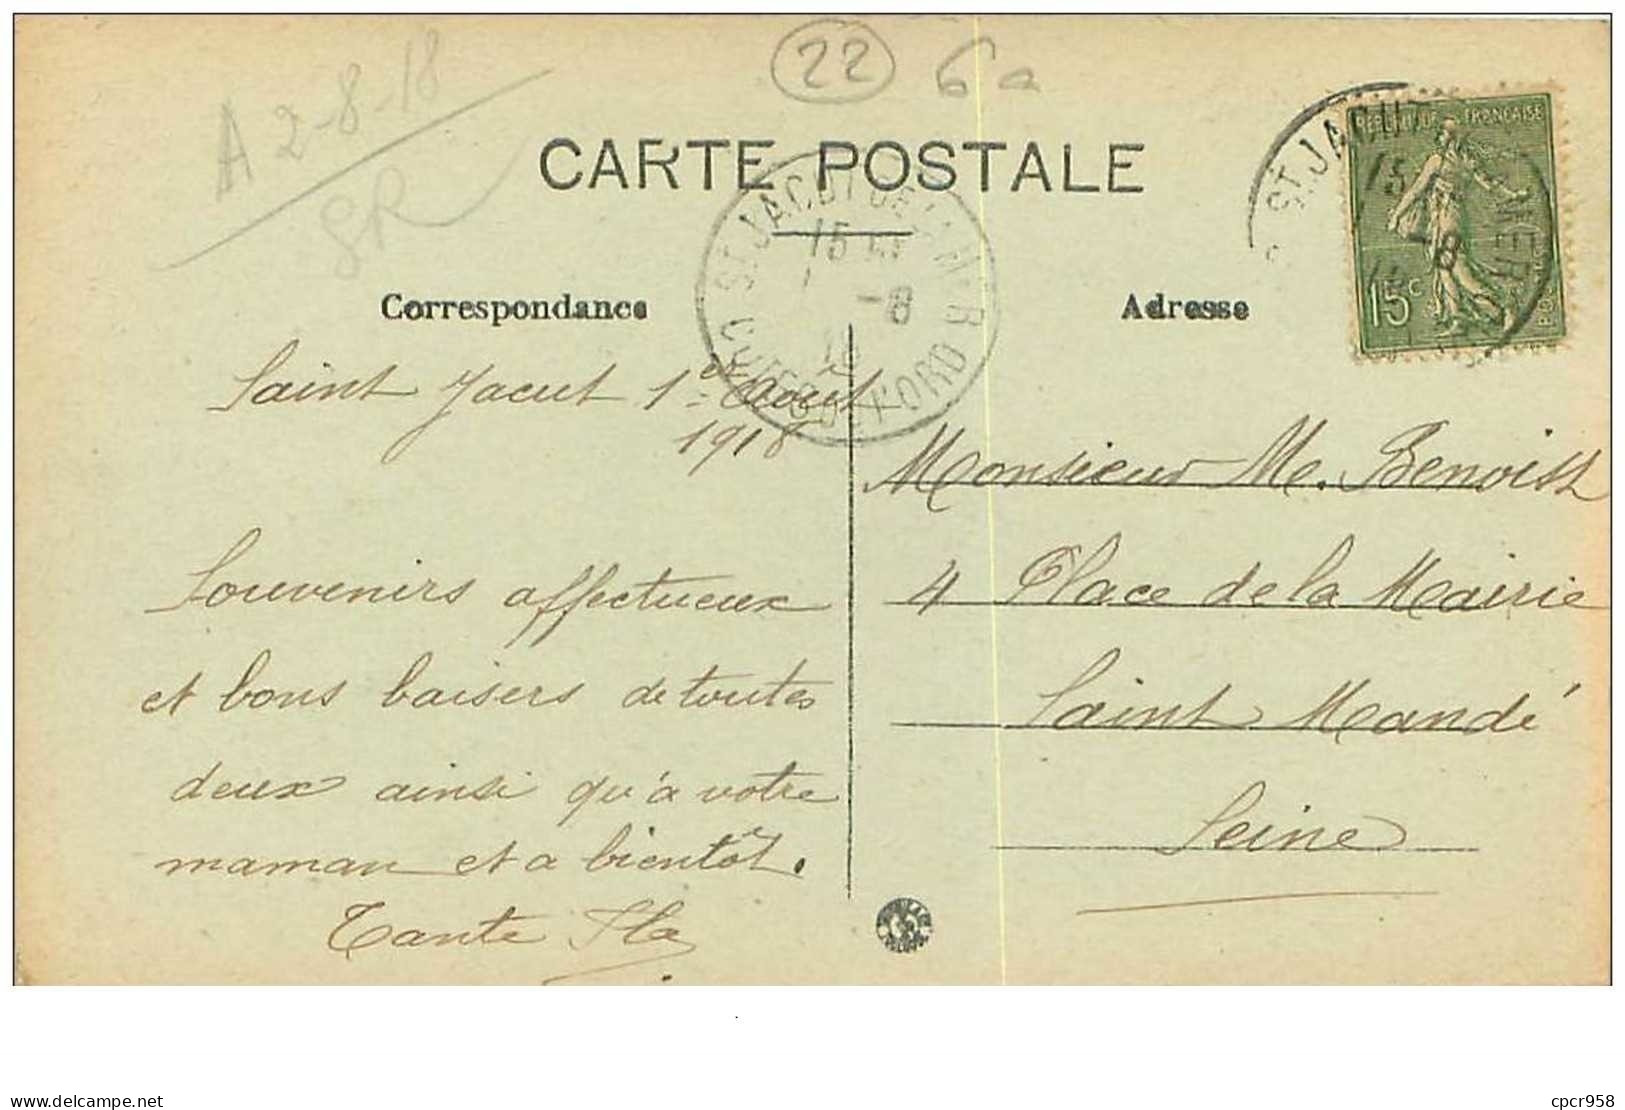 22 6a
A 2-8-18
CARTE POSTALE
ST JACUT DE LA MER
15
1 -8
18
COTES DU NORD
REPUBLIQUE FRANÇAISE
15c
Correspondance
Adresse
Saint Jacut 1er Août
1918
Souvenirs affectueux
et bons baisers de toutes
deux ainsi qu'à votre
maman et a bientôt.
Tante
Monsieur M. Benoist
4 Place de la Mairie
Saint Mandé
Seine
www.delcampe.net
cpcr958